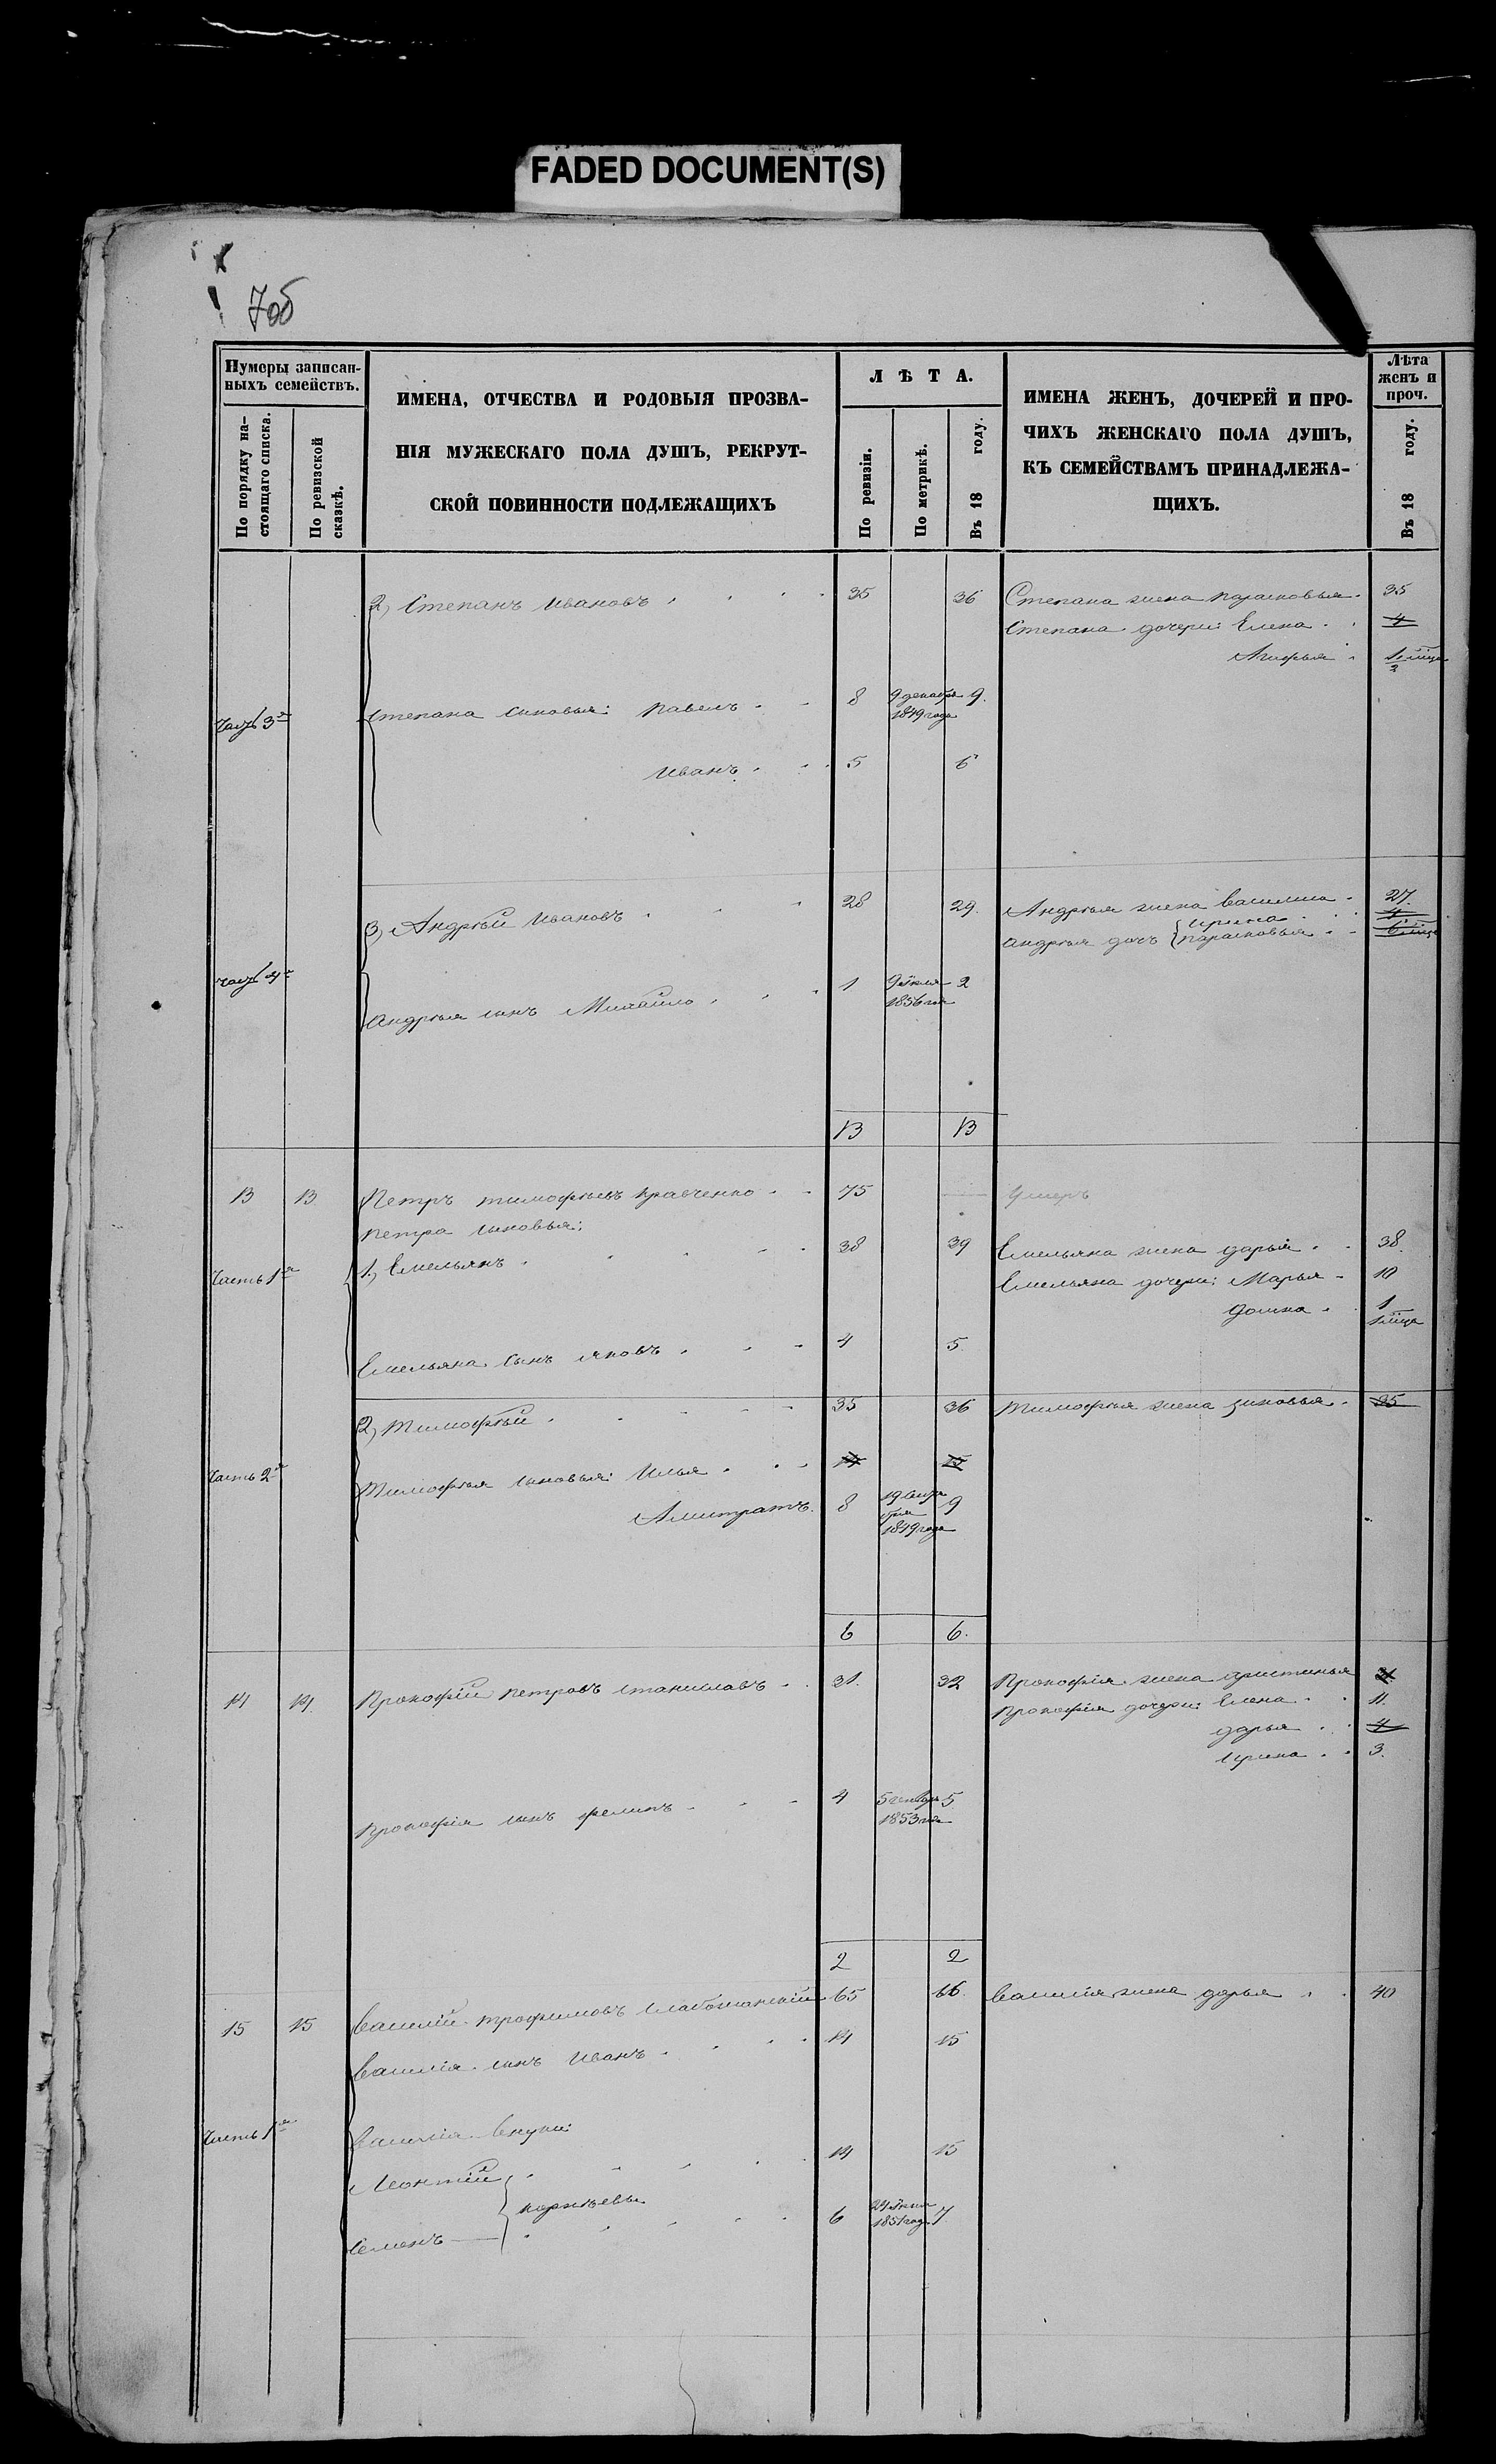 FADED DOCUMENT(S)
7об
Нумеры записан-
ныхъ семействъ.
По порядку на-
стоящаго списка.
По ревизской
сказкѣ.
ИМЕНА, ОТЧЕСТВА И РОДОВЫЯ ПРОЗВА-
НІЯ МУЖЕСКАГО ПОЛА ДУШЪ, РЕКРУТ-
СКОЙ ПОВИННОСТИ ПОДЛЕЖАЩИХЪ
ЛѢТА.
По ревизіи.
По метрикѣ.
Въ 18 году.
ИМЕНА ЖЕНЪ, ДОЧЕРЕЙ И ПРО-
ЧИХЪ ЖЕНСКАГО ПОЛА ДУШЪ,
КЪ СЕМЕЙСТВАМЪ ПРИНАДЛЕЖА-
ЩИХЪ.
Лѣта
женъ и
проч.
Въ 18 году.
2, Степанъ Ивановъ 35 36 Степана жена Парасковья 35
Степана дочери: Елена 4
Агафья
Часть 3я Степана сыновья: Павелъ 8 9 декабря 9.
1849 года
Иванъ 5 6
3, Андрѣй Ивановъ 28 29. Андрѣя жена Василиса 27.
Андрѣя дочь Ирина 4
Парасковья
Часть 4я Андрѣя сынъ Михайло 1 9 Іюля 2
1856 год
13 13
13 13 Петръ Тимофѣевъ Кравченко 75 Умеръ
Петра сыновья:
Часть 1я 1, Емельянъ 38 39 Емельяна жена Дарья 38.
Емельяна дочери: Марья 10
Домна 1
Емельяна сынъ Яковъ 4 5
2, Тимофѣй 35 36 Тимофѣя жена Зиновья 35
Часть 2я Тимофѣя сыновья: Илья
8 19 9
1849 года
6 6.
14 14. Прокофій Петровъ Станиславъ 31. 32 Прокофія жена Христинья
Прокофія дочери: Елена 11.
Дарья 4
Ирина 3.
Прокофія сынъ Филипъ 4 5 5
1853 года
2 2
15 15 Василій Трофимовъ 65 66. Василія жена Дарья 40
Василія сынъ Иванъ 14 15
Часть 1я Василія внуки:
Леонтій 14 15
Корнѣевы
Семенъ 6 24 Іюня 7
1851 года